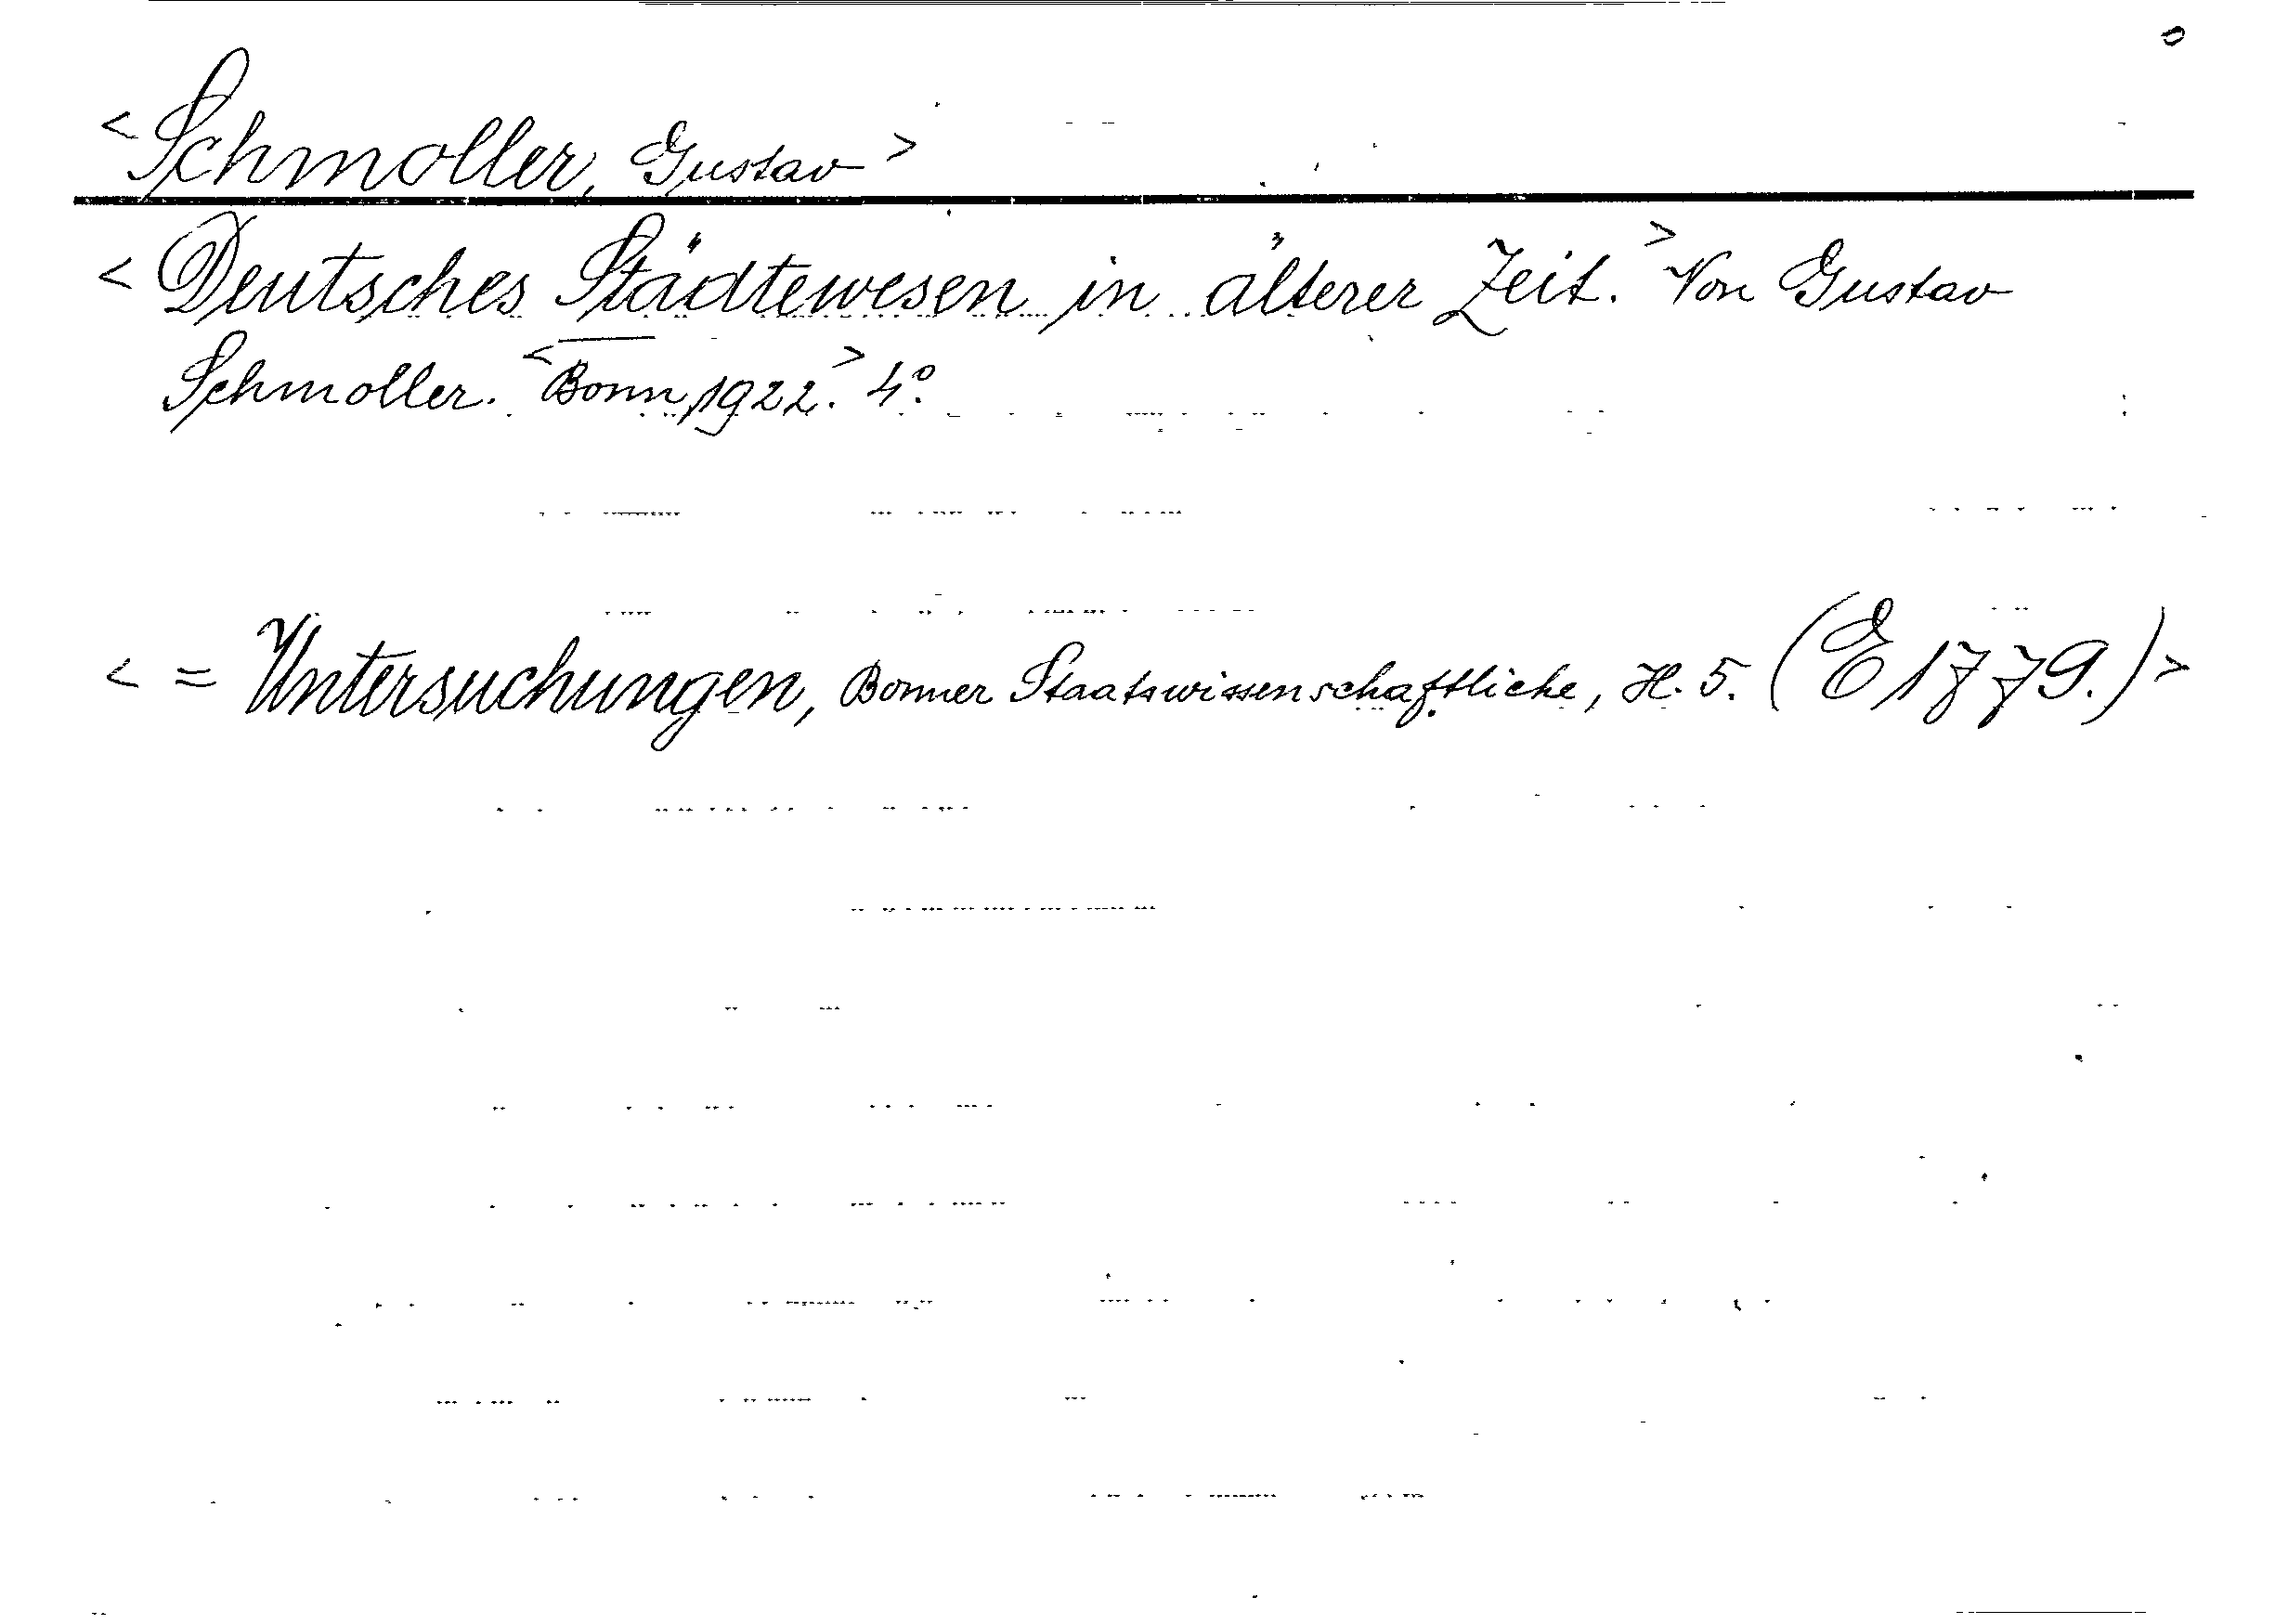 < Schmoller, Gustav >
< Deutsches Städtewesen in älterer Zeit. > Von Gustav
Schmoller. < Bonn, 1922. > 4°.
< = Untersuchungen, Bonner Staatswissenschaftliche, H. 5. (E 1779.) >